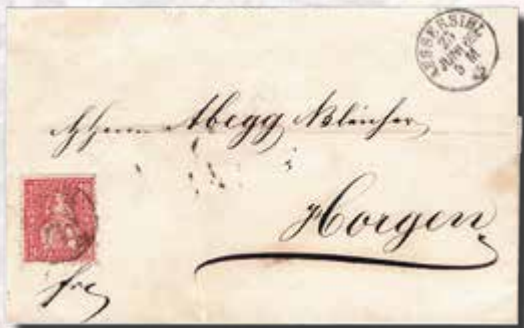 AUSSERSIHL
25
JUNI
5 M
Herrn Abegg Bleicher
Horgen
fco